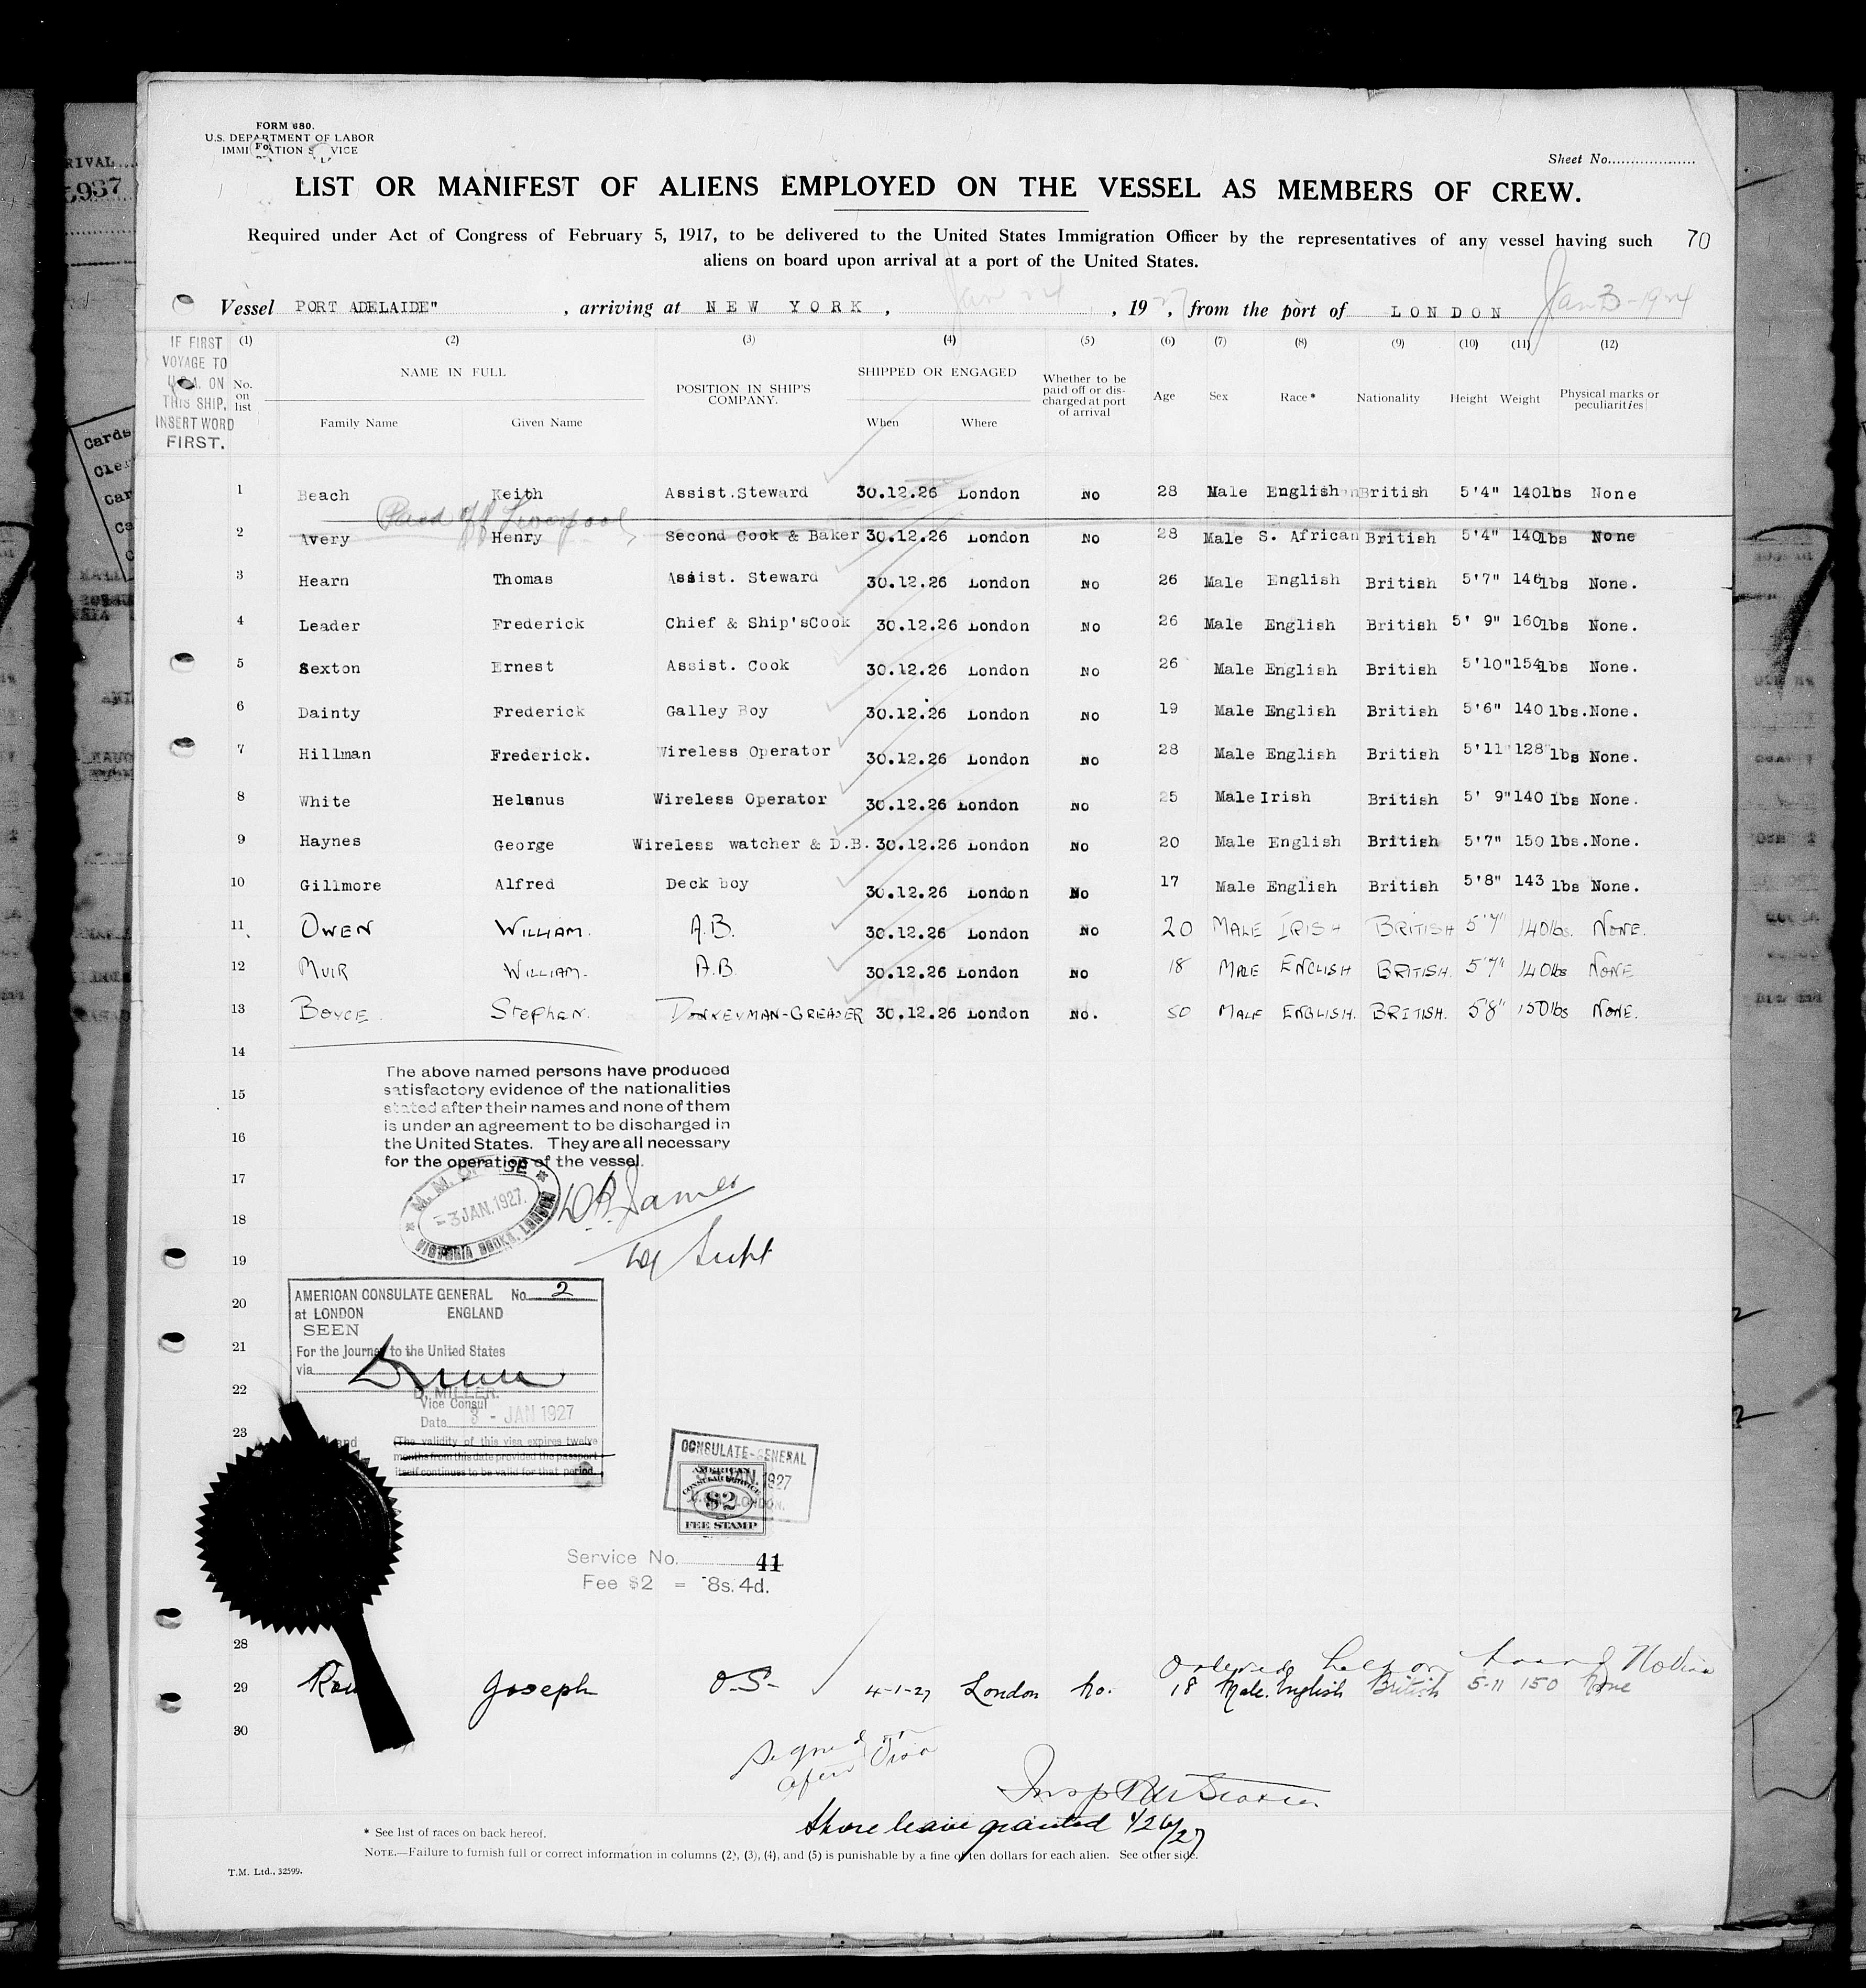 FORM 680.
U.S. DEPARTMENT OF LABOR
Sheet No.
LIST OR MANIFEST OF ALIENS EMPLOYED ON THE VESSEL AS MEMBERS OF CREW.
Required under Act of Congress of February 5, 1917, to be delivered to the United States Immigration Officer by the representatives of any vessel having such
aliens on board upon arrival at a port of the United States.
70
Vessel PORT ADELAIDE", arriving at NEW YORK, Jan 24, 1927, from the port of LONDON
IF FIRST VOYAGE TO U.S.A. ON THIS SHIP, INSERT WORD FIRST.
(1) (2) (3) (4) (5) (6) (7) (8) (9) (10) (11) (12)
No. on list NAME IN FULL POSITION IN SHIP'S COMPANY. SHIPPED OR ENGAGED Whether to be paid off or discharged at port of arrival Age Sex Race* Nationality Height Weight Physical marks or peculiarities
Family Name Given Name When Where
1 Beach Keith Assist.Steward 30.12.26 London No 28 Male English British 5'4" 140lbs None
Paid off Liverpool
2 Avery Henry Second Cook & Baker 30.12.26 London No 28 Male S. African British 5'4" 140lbs None
3 Hearn Thomas Assist. Steward 30.12.26 London No 26 Male English British 5'7" 146lbs None.
4 Leader Frederick Chief & Ship'sCook 30.12.26 London No 26 Male English British 5' 9" 160lbs None.
5 Sexton Ernest Assist. Cook 30.12.26 London No 26 Male English British 5'10" 154lbs None.
6 Dainty Frederick Galley Boy 30.12.26 London No 19 Male English British 5'6" 140 lbs. None.
7 Hillman Frederick. Wireless Operator 30.12.26 London No 28 Male English British 5'11 128 lbs None.
8 White Helenus Wireless Operator 30.12.26 London No 25 Male Irish British 5' 9" 140 lbs None.
9 Haynes George Wireless watcher & D.B. 30.12.26 London No 20 Male English British 5'7" 150 lbs. None.
10 Gillmore Alfred Deck boy 30.12.26 London No 17 Male English British 5'8" 143 lbs None.
11 OWEN WILLIAM. A.B. 30.12.26 London No 20 MALE IRISH BRITISH 5'7" 140lbs. NONE.
12 MUIR WILLIAM. A.B. 30.12.26 London No 18 MALE ENGLISH BRITISH. 5'7" 140lbs NONE
13 BOYCE. StepheN. DONKEYMAN-GREASER 30.12.26 London No. 50 MALE ENGLISH. BRITISH. 5'8" 150lbs NONE.
14
The above named persons have produced
satisfactory evidence of the nationalities
15
stated after their names and none of them
is under an agreement to be discharged in
16
the United States. They are all necessary
for the operation of the vessel.
17
M. M. OFFICE
-3 JAN. 1927.
VICTORIA DOCKS, LONDON
James
18
19
Supt
20
AMERICAN CONSULATE GENERAL No. 2
at LONDON ENGLAND
SEEN
21
For the Journey to the United States
via
22
D. MILLER.
Vice Consul
Date 3 - JAN 1927
23
(The validity of this visa expires twelve
months from this date provided the passport
itself continues to be valid for that period.
CONSULATE-GENERAL
JAN. 1927
LONDON.
AMERICAN CONSULAR SERVICE
$2
FEE STAMP
Service No. 41
Fee $2 = 8s. 4d.
28
29 Joseph O.S. 4-1-27 London No. 18 Male. English British 5-11 150 None
30
Signed on
after Visa
Shore leave granted 1/26/27
* See list of races on back hereof.
NOTE.—Failure to furnish full or correct information in columns (2), (3), (4), and (5) is punishable by a fine of ten dollars for each alien. See other side.
T.M. Ltd., 32599.